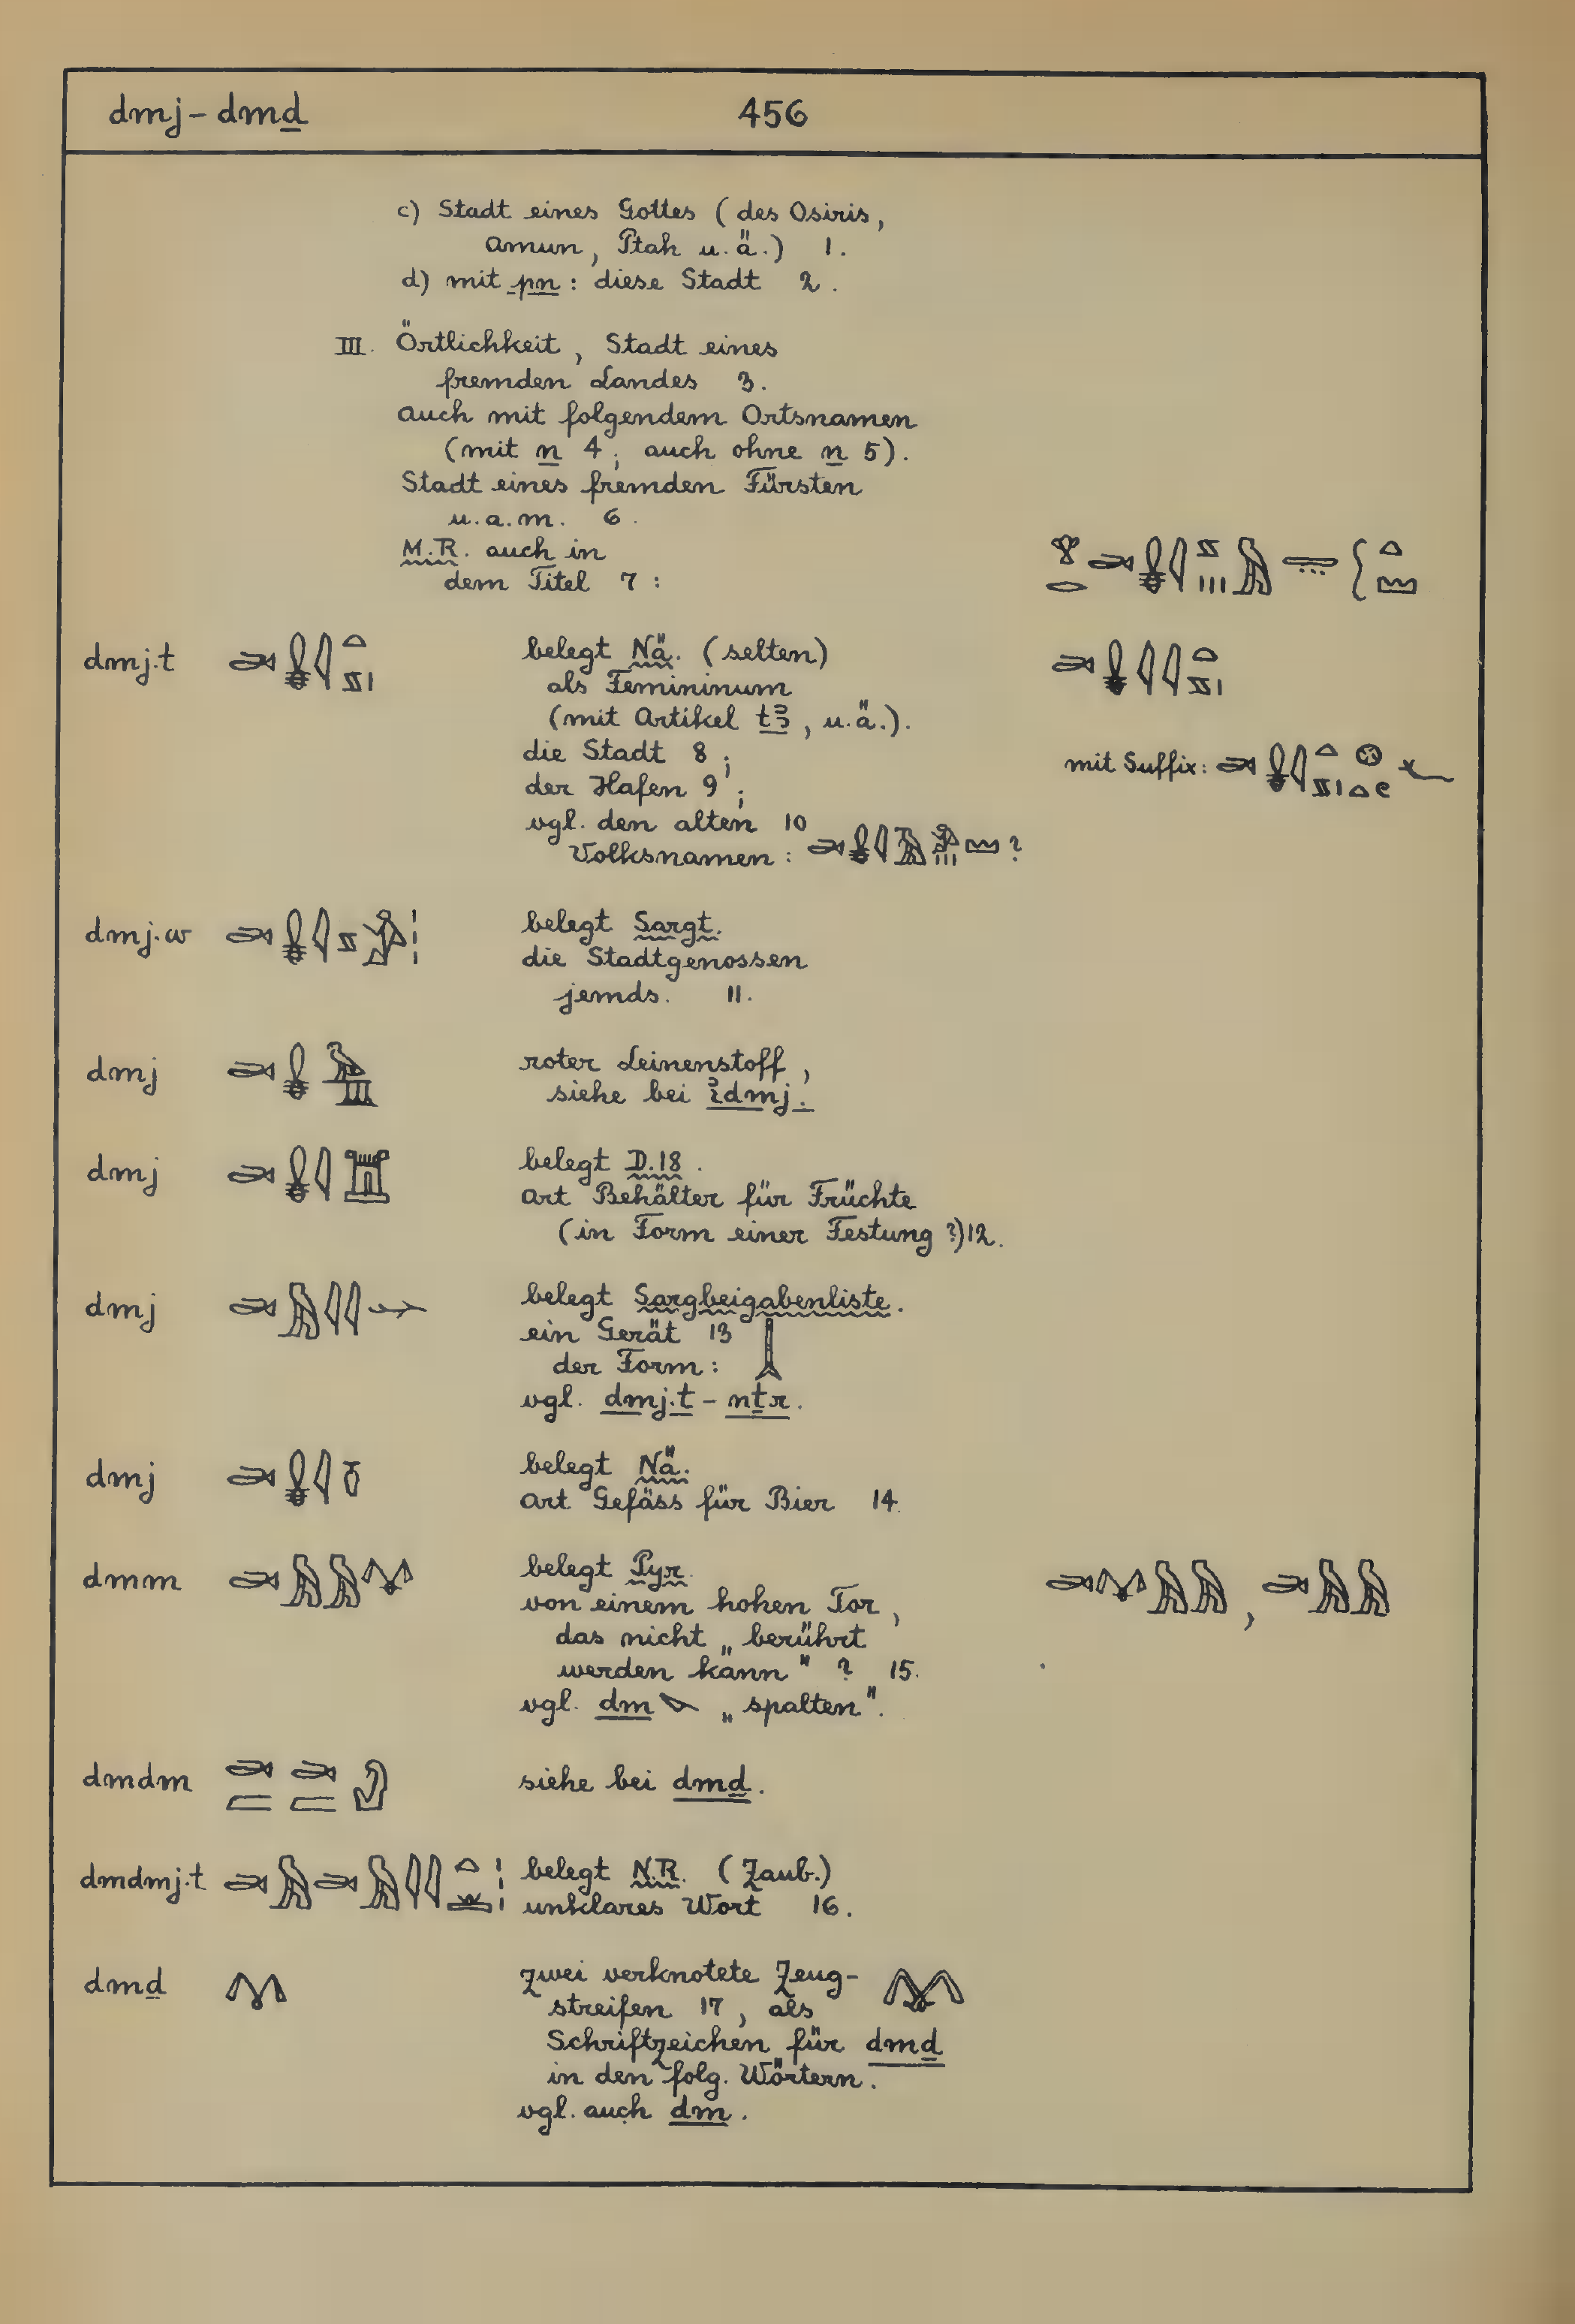 dmj - dmḏ 456
c) Stadt eines Gottes (des Osiris,
Amun, Ptah u.ä.) 1.
d) mit pn: diese Stadt 2.
III. Örtlichkeit, Stadt eines
fremden Landes 3.
auch mit folgendem Ortsnamen
(mit n 4; auch ohne n 5).
Stadt eines fremden Fürsten
u.a.m. 6.
M.R. auch in
dem Titel 7:
dmj.t belegt Nä. (selten)
als Femininum
(mit Artikel tꜣ, u.ä.).
die Stadt 8;
der Hafen 9;
mit Suffix:
vgl. den alten 10
Volksnamen: ?
dmj.w belegt Sargt.
die Stadtgenossen
jemds. 11.
dmj roter Leinenstoff,
siehe bei ꞽdmj.
dmj belegt D.18.
Art Behälter für Früchte
(in Form einer Festung ?) 12.
dmj belegt Sargbeigabenliste.
ein Gerät 13
der Form:
vgl. dmj.t - nṯr.
dmj belegt Nä.
Art Gefäss für Bier 14.
dmm belegt Pyr.
von einem hohen Tor,
das nicht „berührt
werden kann" ? 15.
vgl. dm „spalten".
dmdm siehe bei dmḏ.
dmdmj.t belegt N.R. (Zaub.)
unklares Wort 16.
dmḏ zwei verknotete Zeug-
streifen 17, als
Schriftzeichen für dmḏ
in den folg. Wörtern.
vgl. auch dm.